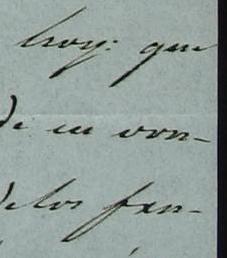 hoy: que
de en con-
de los fan-